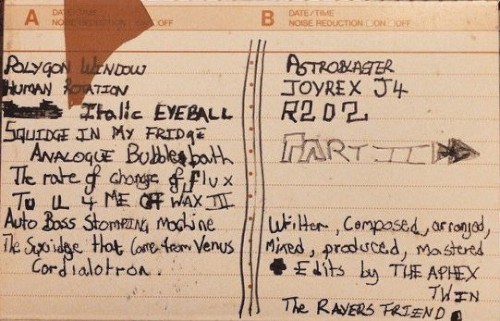 A DATE/TIME
NOISE REDUCTION ON OFF
POLYGON WINDOW
HUMAN ROTATION
Italic EYEBALL
SQUIDGE IN MY FRIDGE
ANALOGUE Bubblebath
The rate of change of flux
TO U 4 ME OFF WAX III
Auto Bass Stomping Machine
The Squidge that Came from Venus
Cordialotron.
B DATE/TIME
NOISE REDUCTION ON OFF
ASTROBLASTER
JOYREX J4
R2D2
PART II
Written, Composed, arranged,
Mixed, produced, Mastered
+ Edits by THE APHEX
TWIN
The RAVERS FRIEND.